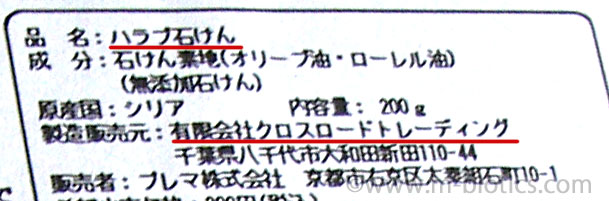 品 名：ハラブ石けん
成 分：石けん素地(オリーブ油・ローレル油)
(無添加石けん)
原産国：シリア 内容量： 200g
製造販売元：有限会社クロスロードトレーディング
千葉県八千代市大和田新田110-44
販売者：プレマ株式会社 京都市右京区太秦 町10-1
www.m-biotics.com